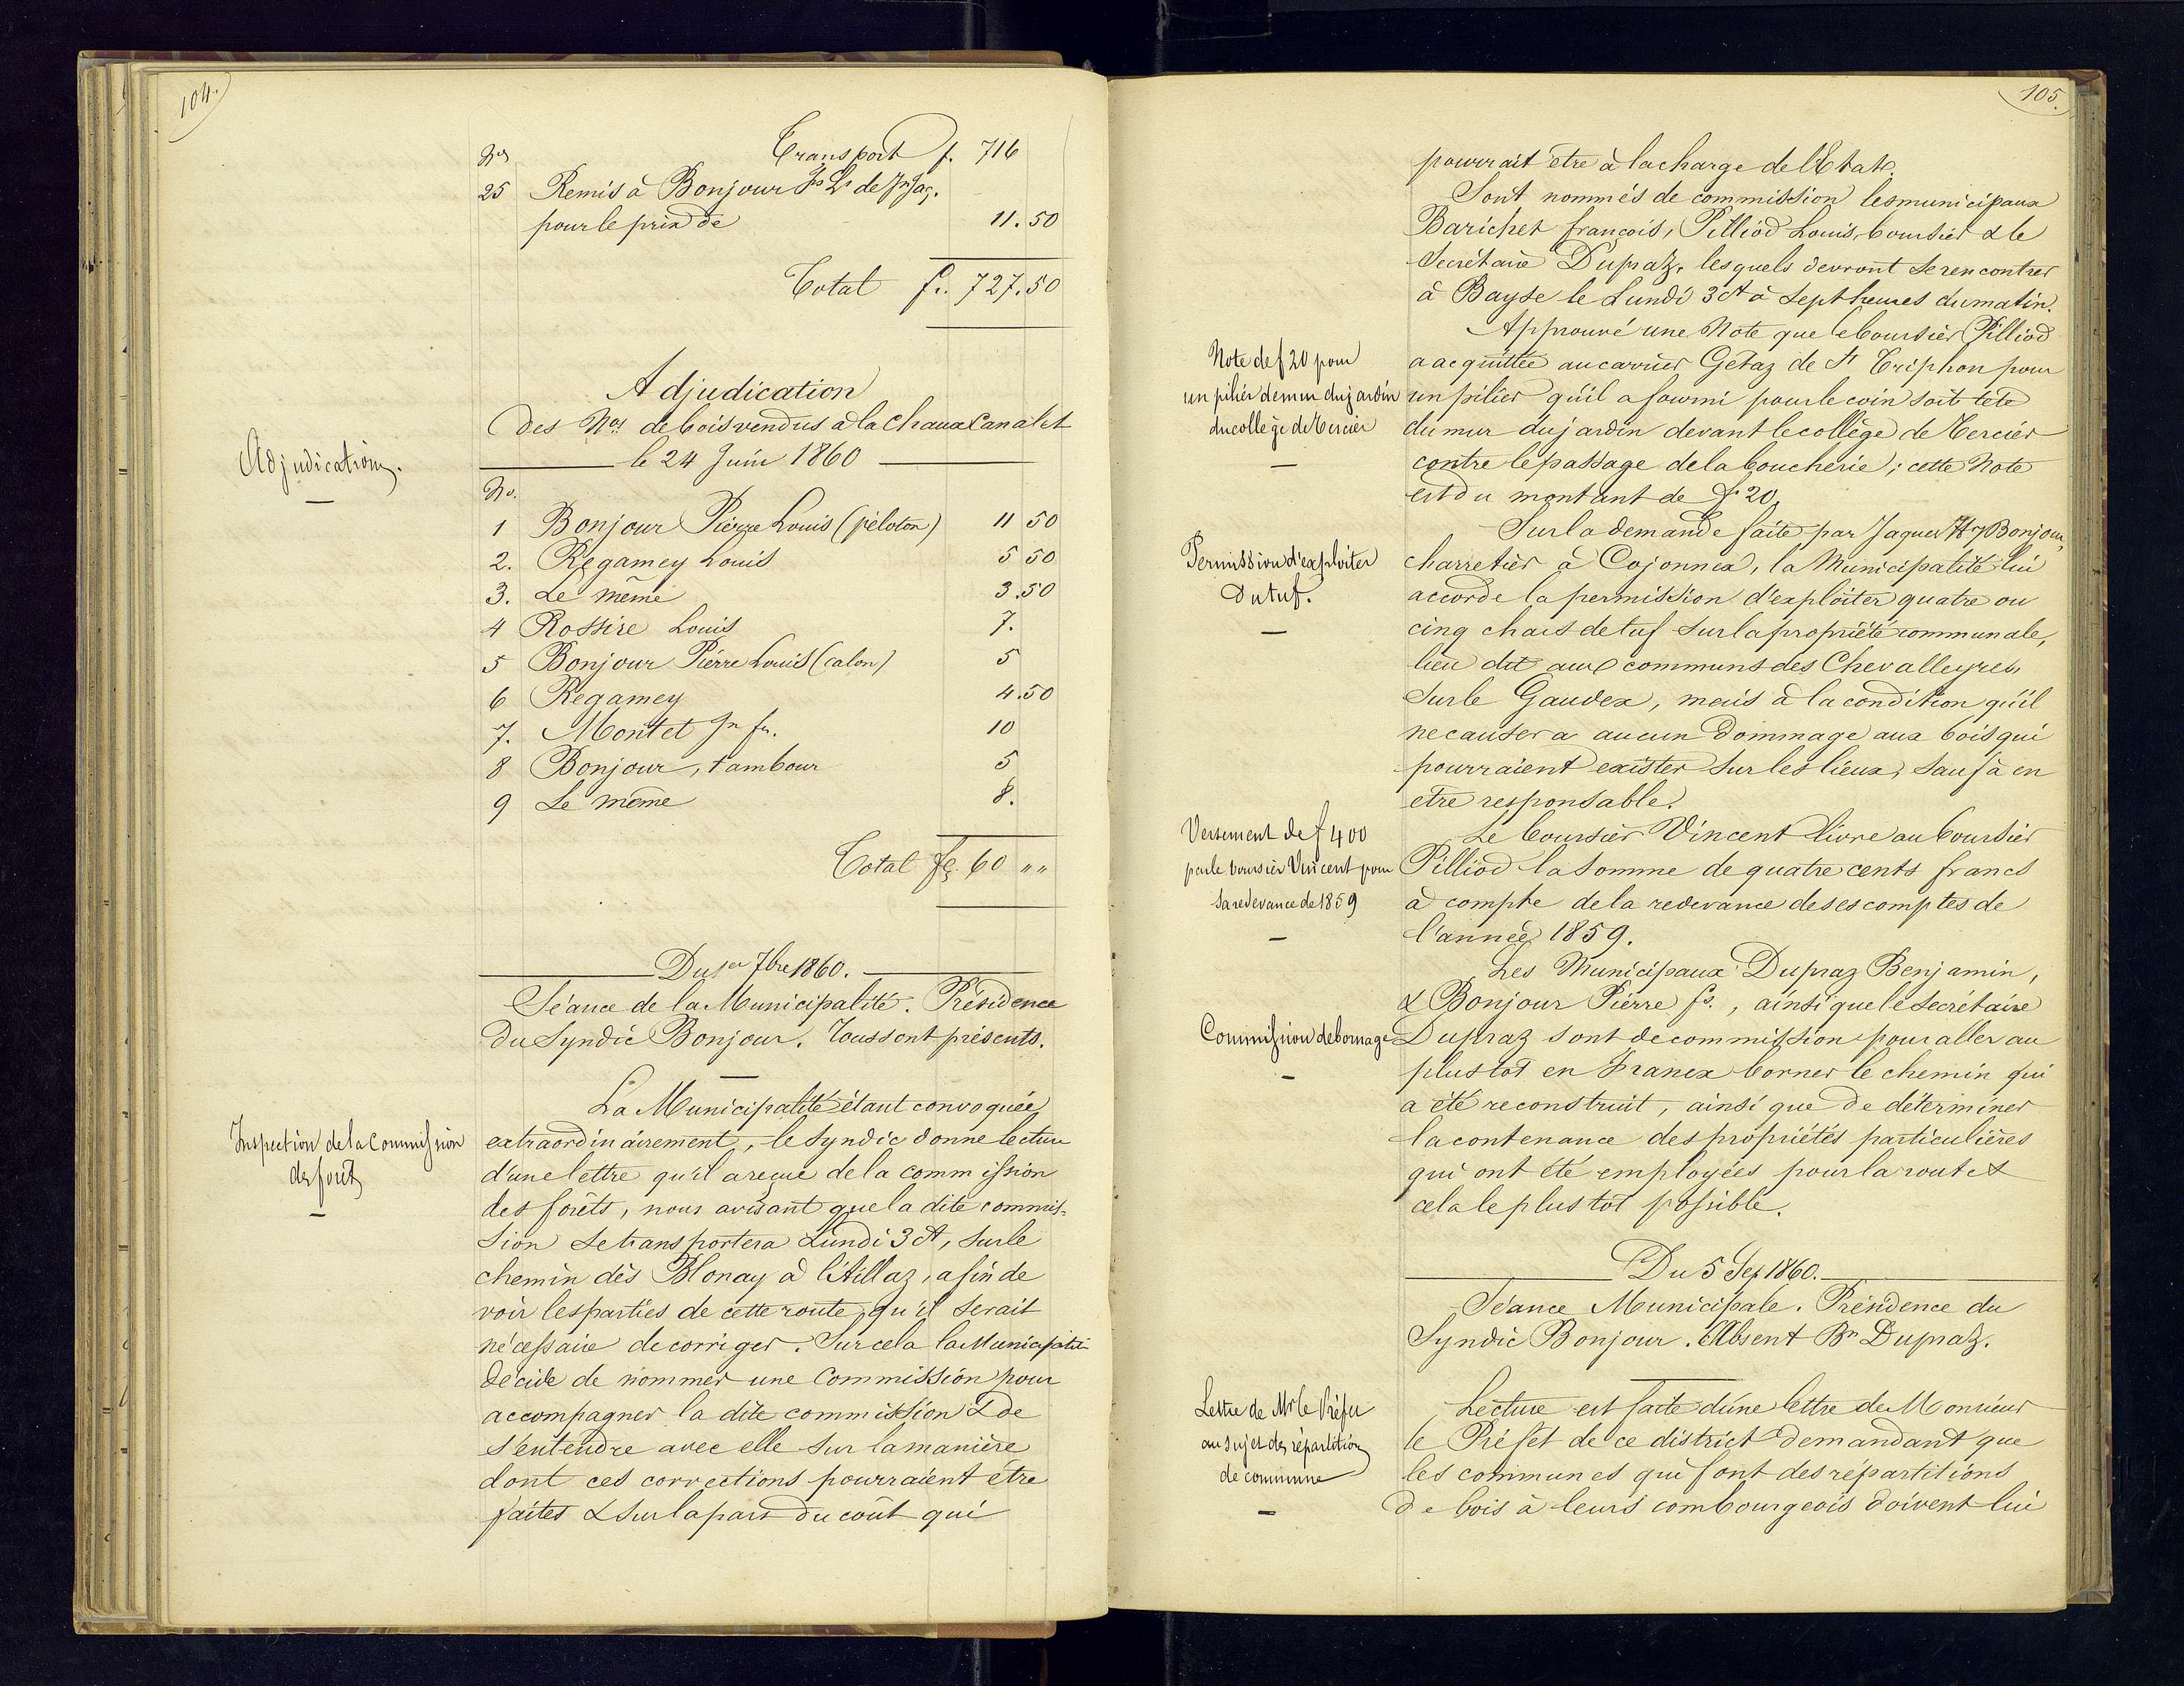 104.
Nos Transport f. 716
25 Remis à Bonjour Js Ls de Jn Jaq.
pour le prix de 11.50
Total fr. 727.50
Adjudication
des Nos de bois vendus à la Chaux Canalet
Adjudication.
le 24 Juin 1860
No.
1 Bonjour Pierre Louis (péloton) 11 50
2. Regamey Louis 5 50
3. Le même 3.50
4 Rossire Louis 7.
5 Bonjour Pierre Louis (calon) 5
6 Regamey 4.50
7. Montet Jn fs. 10
8 Bonjour, tambour 5
9 Le même 8.
Total fcs. 60 " "
Du 1er 7bre 1860.
Séance de la Municipalité. Présidence
du Syndic Bonjour. Tous sont présents.
La Municipalité étant convoquée
Inspection de la Commission
des forêts
extraordinairement, le Syndic donne lecture
d'une lettre qu'il a reçue de la commission
des forêts, nous avisant que la dite commis-
sion se transportera Lundi 3 ct, sur le
chemin dès Blonay à l'Aillaz, afin de
voir les parties de cette route, qu'il serait
nécessaire de corriger. Sur cela la Municipalité
décide de nommer une Commission pour
accompagner la dite commission & de
s'entendre avec elle sur la manière
dont ces corrections pourraient être
faites & sur la part du coût qui
105.
pourrait être à la charge de l'Etat.
Sont nommés de commission les municipaux
Barichet françois, Pilliod Louis, boursier & le
Secrétaire Dupraz, lesquels devront se rencontrer
à Bayse le Lundi 3 ct à sept heures du matin.
Approuvé une Note que le boursier Pilliod
Note de f 20 pour
un pilier de mur du jardin
du collège de Tercier
a acquittée au carrier Getaz de St Triphon pour
un pilier qu'il a fourni pour le coin soit tête
du mur du jardin devant le collège de Tercier
contre le passage de la boucherie; cette Note
est du montant de f 20.
Sur la demande faite par Jaques Hry Bonjour,
Permission d'exploiter
du tuf.
charretier à Cojonnex, la Municipalité lui
accorde la permission d'exploiter quatre ou
cinq chars de tuf sur la propriété communale,
lieu dit aux communs des Chevalleyres,
sur le Gaudex, mais à la condition qu'il
ne causera aucun dommage aux bois qui
pourraient exister sur les lieux, sauf à en
être responsable.
Versement de f 400
par le boursier Vincent pour
sa redevance de 1859
Le boursier Vincent livre au boursier
Pilliod la somme de quatre cents francs
à compte de la redevance de ses comptes de
l'année 1859.
Les Municipaux Dupraz Benjamin,
& Bonjour Pierre fs., ainsi que le Secrétaire
Commission de bornage
Dupraz sont de commission pour aller au
plus tôt en Franex borner le chemin qui
a été reconstruit, ainsi que de déterminer
la contenance des propriétés particulières
qui ont été employées pour la route &
cela le plus tôt possible.
Du 5 Sep 1860.
Séance Municipale. Présidence du
Syndic Bonjour. Absent Bn Dupraz.
Lettre de Mr le Préfet
au sujet des répartitions
de commune
Lecture est faite d'une lettre de Monsieur
le Préfet de ce district demandant que
les communes qui font des répartitions
de bois à leurs combourgeois doivent lui